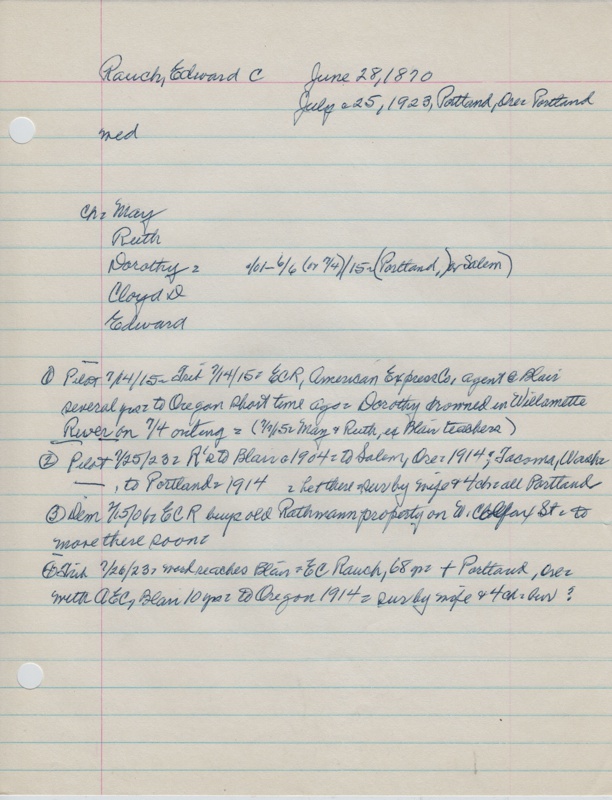 Rauch, Edward C June 28, 1870
July 25, 1923, Portland, Ore= Portland
med
ch= May
Ruth
Dorothy = /01- 6/6 (or 7/4)/15= (Portland,) or Salem)
Cloyd D
Edward
① Pilot 7/14/15= Trib 7/14/15= ECR, American Express Co, agent @ Blair
several yrs= to Oregon short time ago= Dorothy drowned in Willamette
River on 7/4 outing = ( = May & Ruth, ex Blair teachers)
② Pilot 7/25/23= R's to Blair 1904= to Salem, Ore= 1914; Tacoma, Wash=
—, to Portland= 1914 = her there= sur by wife & 4 ch= all Portland
③ Dem /15/06= ECR buys old Rathmann property on W. Colfax St= to
move there soon=
④ Trib 7/26/23= word reaches Blair= EC Rauch, 68 yr= + Portland, Ore=
with AEC, Blair 10 yrs= to Oregon 1914= sur by wife & 4 ch= bur ?